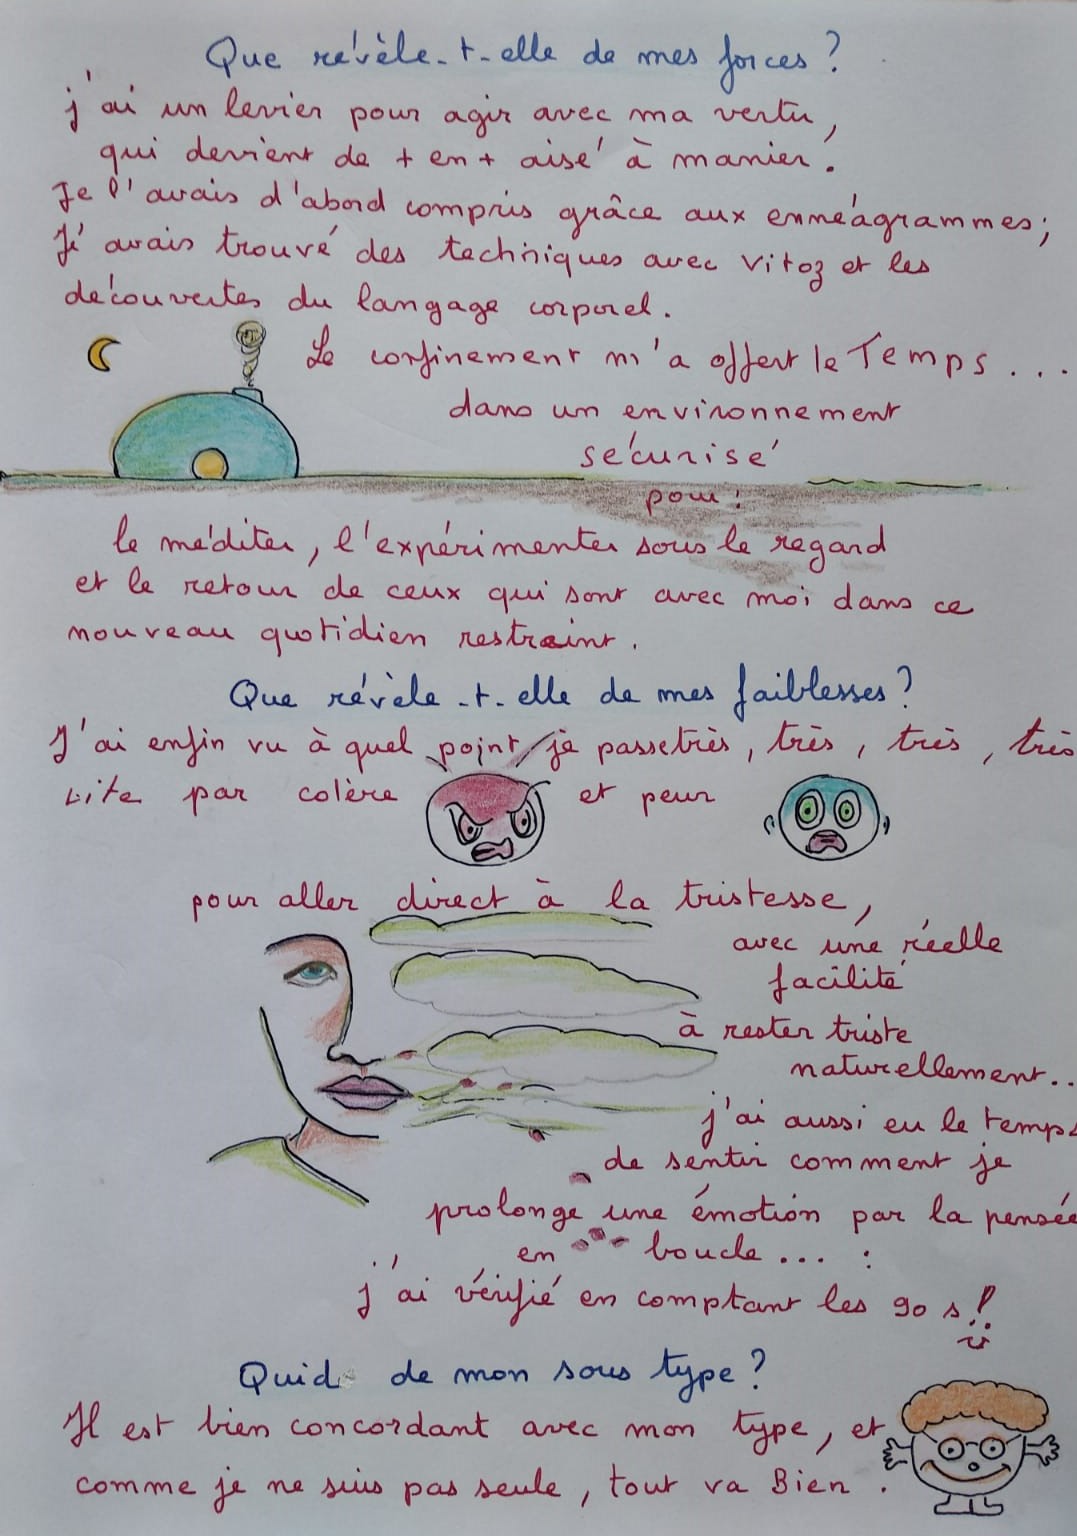 Que révèle-t-elle de mes forces ?
j'ai un levier pour agir avec ma vertu,
qui devient de + en + aisé à manier.
Je l'avais d'abord compris grâce aux ennéagrammes ;
J'avais trouvé des techniques avec Vitoz et les
découvertes du langage corporel.
Le confinement m'a offert le Temps...
dans un environnement
sécurisé
pour :
le méditer, l'expérimenter sous le regard
et le retour de ceux qui sont avec moi dans ce
nouveau quotidien restreint.
Que révèle-t-elle de mes faiblesses ?
J'ai enfin vu à quel point je passe très, très, très, très
vite par colère et peur
pour aller direct à la tristesse,
avec une réelle
facilité
à rester triste
naturellement..
j'ai aussi eu le temps
de sentir comment je
prolonge une émotion par la pensée
en boucle... :
j'ai vérifié en comptant les 90 s !
Quid de mon sous type ?
Il est bien concordant avec mon type, et
comme je ne suis pas seule, tout va Bien.